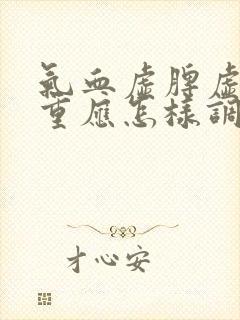 氣血虛脾虛
重應怎樣調
才心安